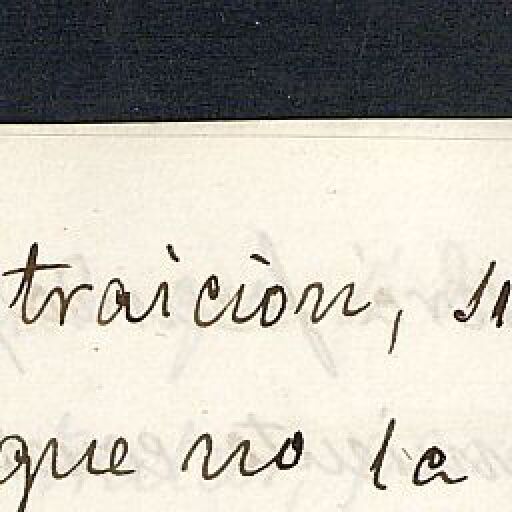 traicion,
que no la